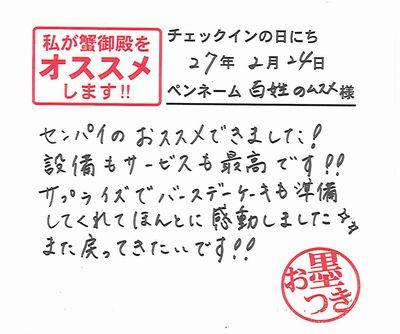 私が蟹御殿を
オススメ
します!!
チェックインの日にち
27年 2月 24日
ペンネーム 百姓のムスメ 様
センパイの おススメできました!
設備もサービスも最高です!!
サプライズでバースデーケーキも準備
してくれてほんとに感動しました
また戻ってきたいです!!
お墨つき